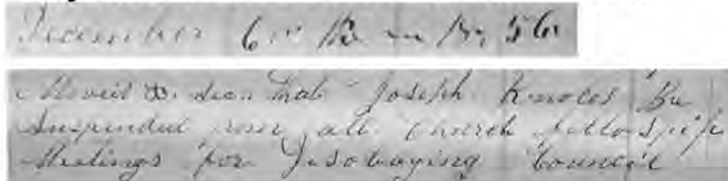 December 6th
Moved & Sec. that Joseph Knowles Be
Suspended from all Church fellowship
Meetings for Disobaying Council